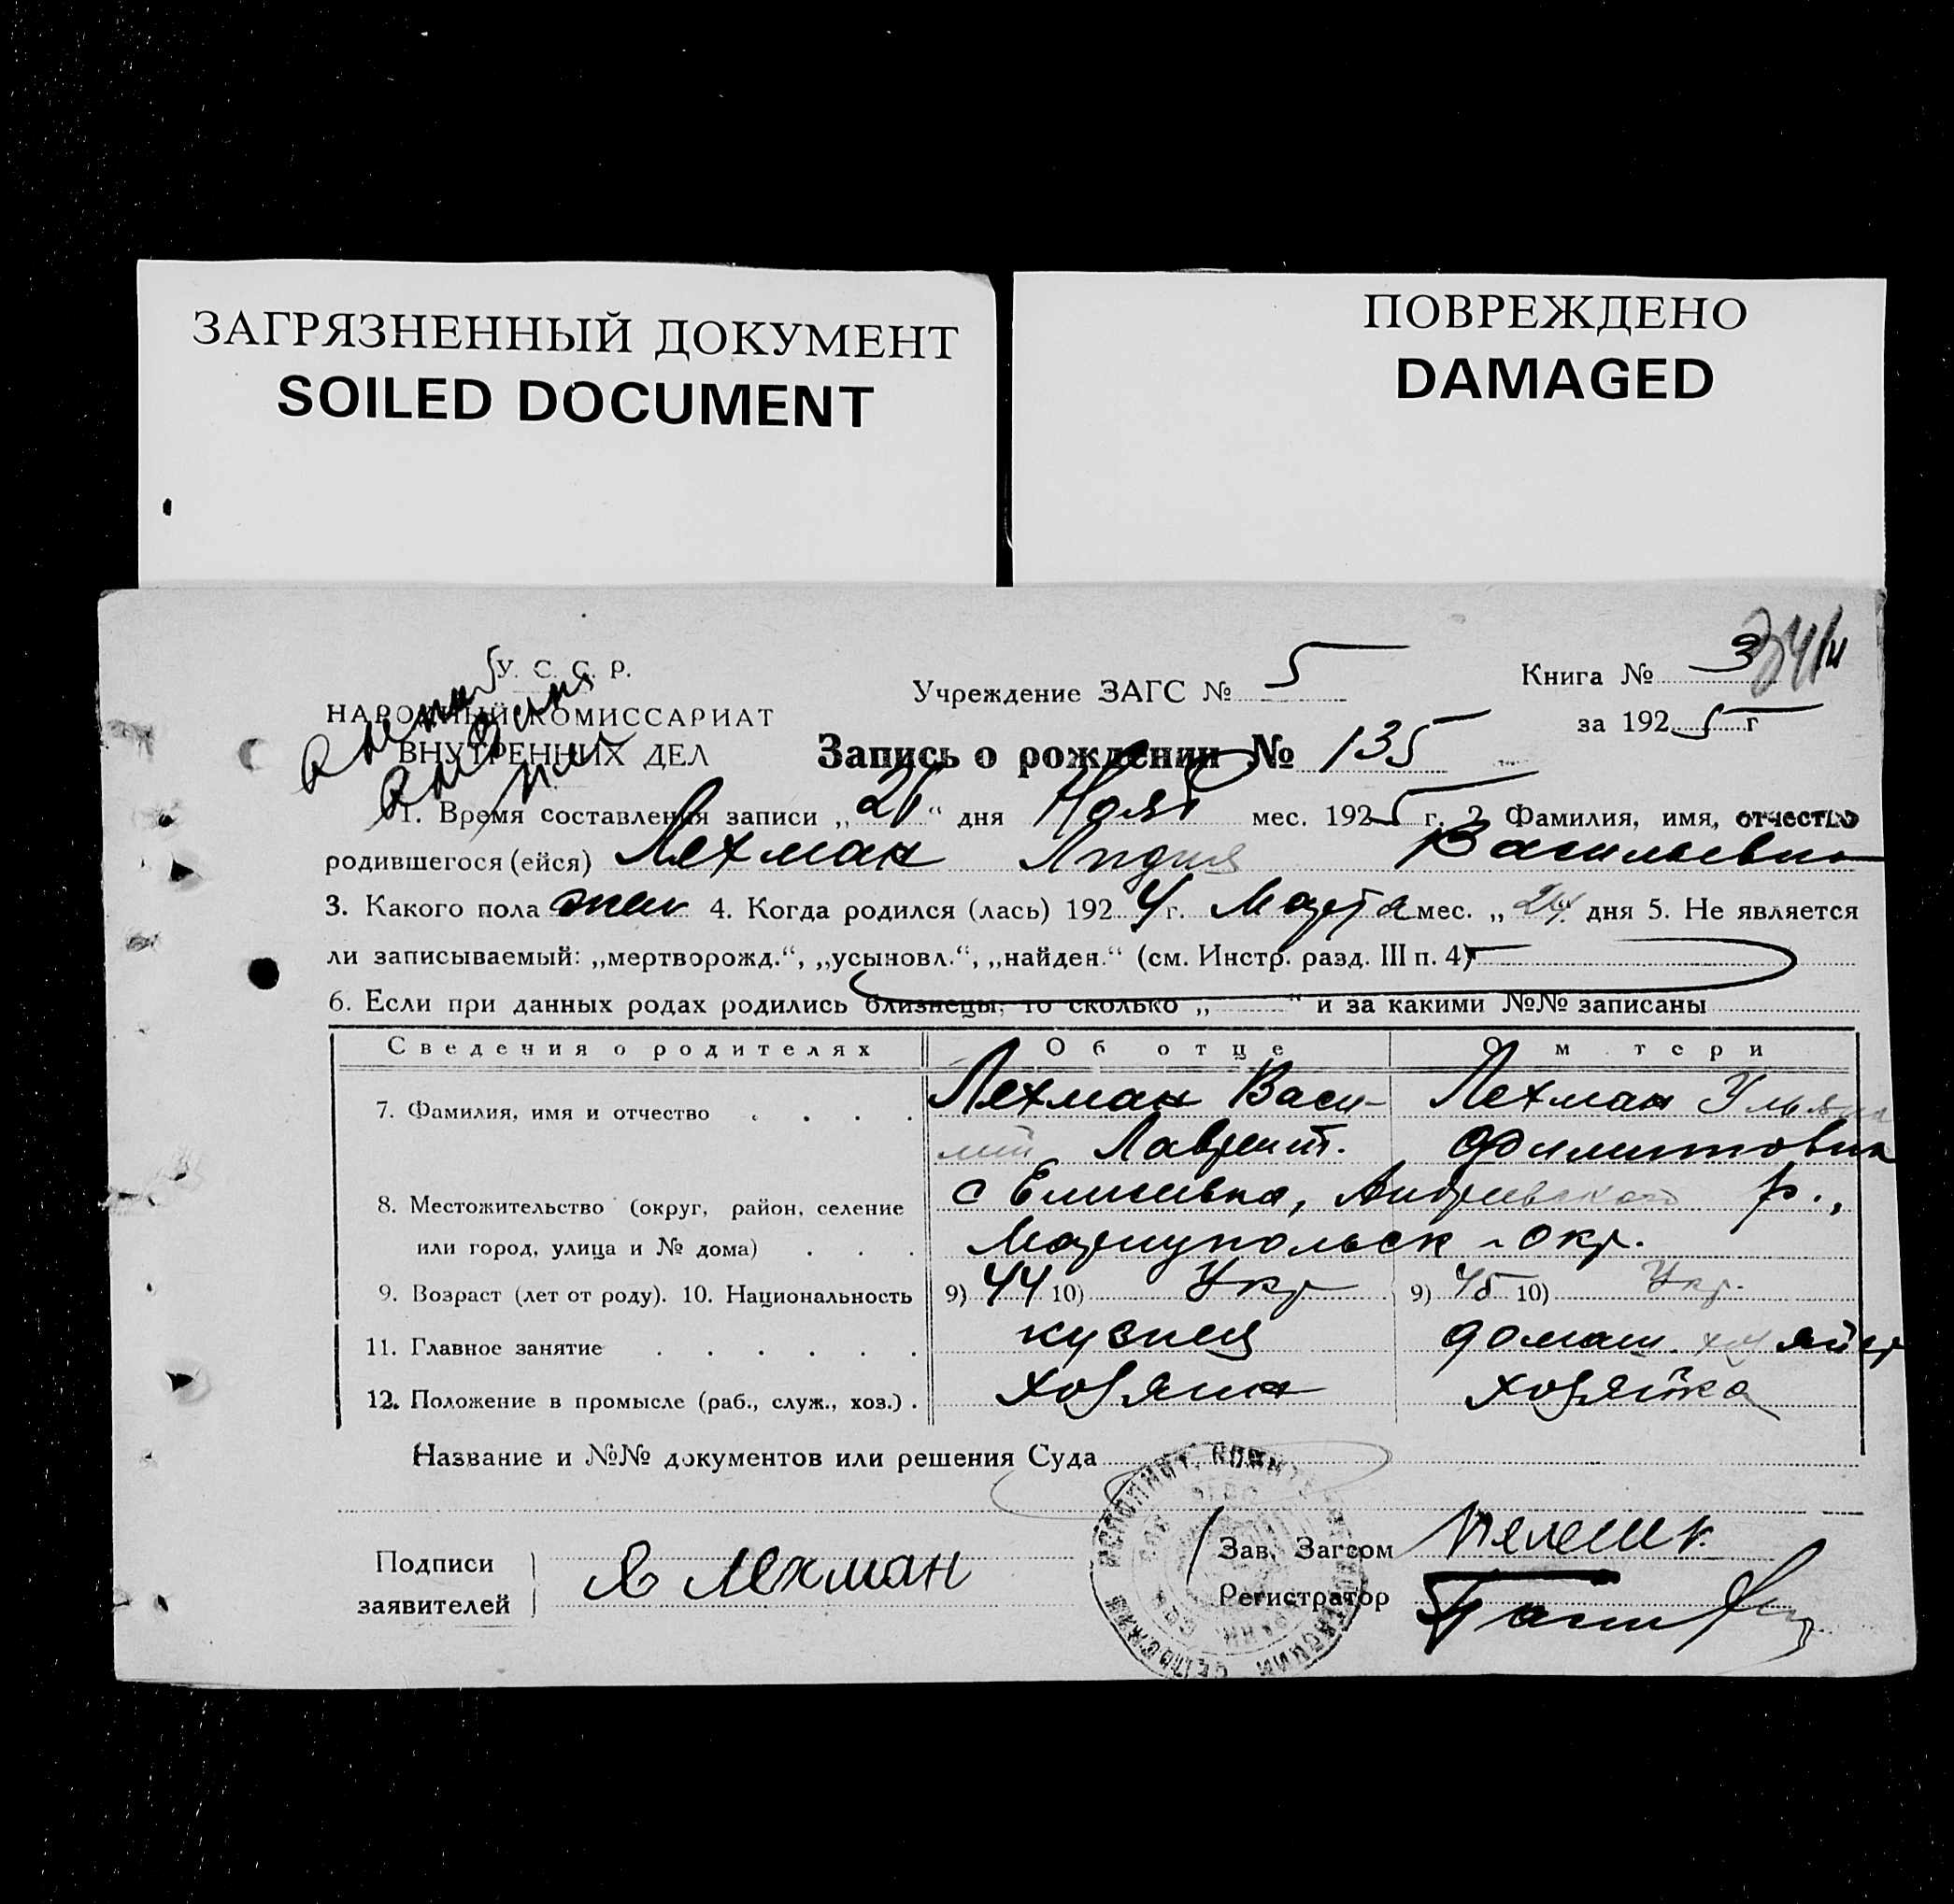 ЗАГРЯЗНЕННЫЙ ДОКУМЕНТ
SOILED DOCUMENT
ПОВРЕЖДЕНО
DAMAGED
У. С. С. Р.
НАРОДНЫЙ КОМИССАРИАТ
ВНУТРЕННИХ ДЕЛ
Учреждение ЗАГС № 5
Книга № 3
за 1925 г
Запись о рождении № 135
1. Время составления записи „ “ дня Нояб мес. 1925 г. 2 Фамилия, имя, отчество
родившегося (ейся) Лехман Лидия Васильевна
3. Какого пола жен 4. Когда родился (лась) 1924 г. Марта мес. „24 дня 5. Не является
ли записываемый: „мертворожд.“, „усыновл.“, „найден.“ (см. Инстр. разд. III п. 4)
6. Если при данных родах родились близнецы, то сколько „ “ и за какими №№ записаны
Сведения о родителях Об отце О м тери
7. Фамилия, имя и отчество . . . . Лехман Васи- Лехман Ульяна
лий Лаврент. Филиповна
8. Местожительство (округ, район, селение с Елисевка, Андреевского р.,
или город, улица и № дома) . . . Мариупольск - окр.
9. Возраст (лет от роду). 10. Национальность 9) 44 10) Укр 9) 45 10) Укр.
11. Главное занятие . . . . . . кузнец домаш. хозяйст
12. Положение в промысле (раб., служ., хоз.) . хозяин хозяйка
Название и №№ документов или решения Суда
Подписи
заявителей
В Лехман
Зав. Загсом
Регистратор